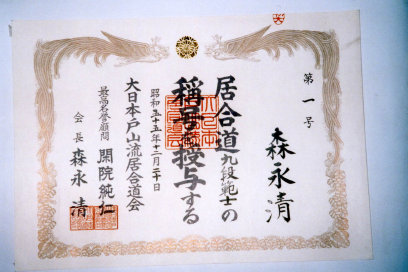 第一号
森永清
居合道九段範士の
称号を授与する
昭和五十五年十二月二十日
大日本戸山流居合道会
最高名誉顧問 閑院純仁
会長 森永清